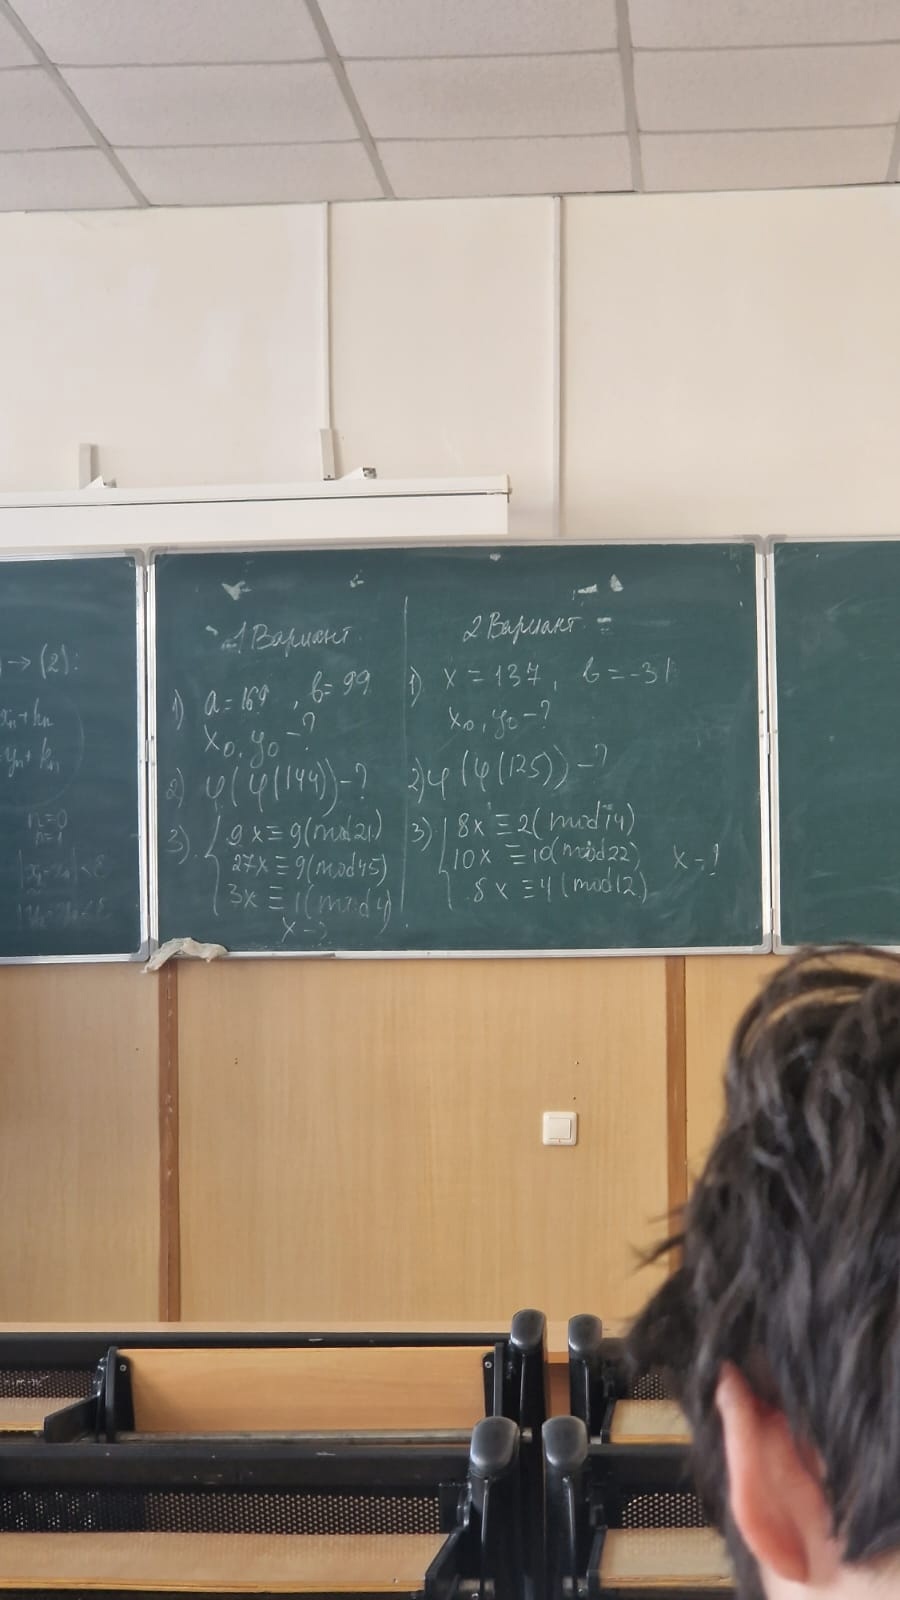 → (2):
n=0
1 Вариант
1) a=169, b=99
x₀, y₀ -?
2) φ(φ(144))-?
3) { 9x≡9(mod21)
27x≡9(mod45)
3x≡1(mod4)
x-?
2 Вариант
1) x=137, b=-31
x₀, y₀-?
2) φ(φ(125))-?
3) { 8x≡2(mod14)
10x≡10(mod22) x-?
8x≡4(mod12)